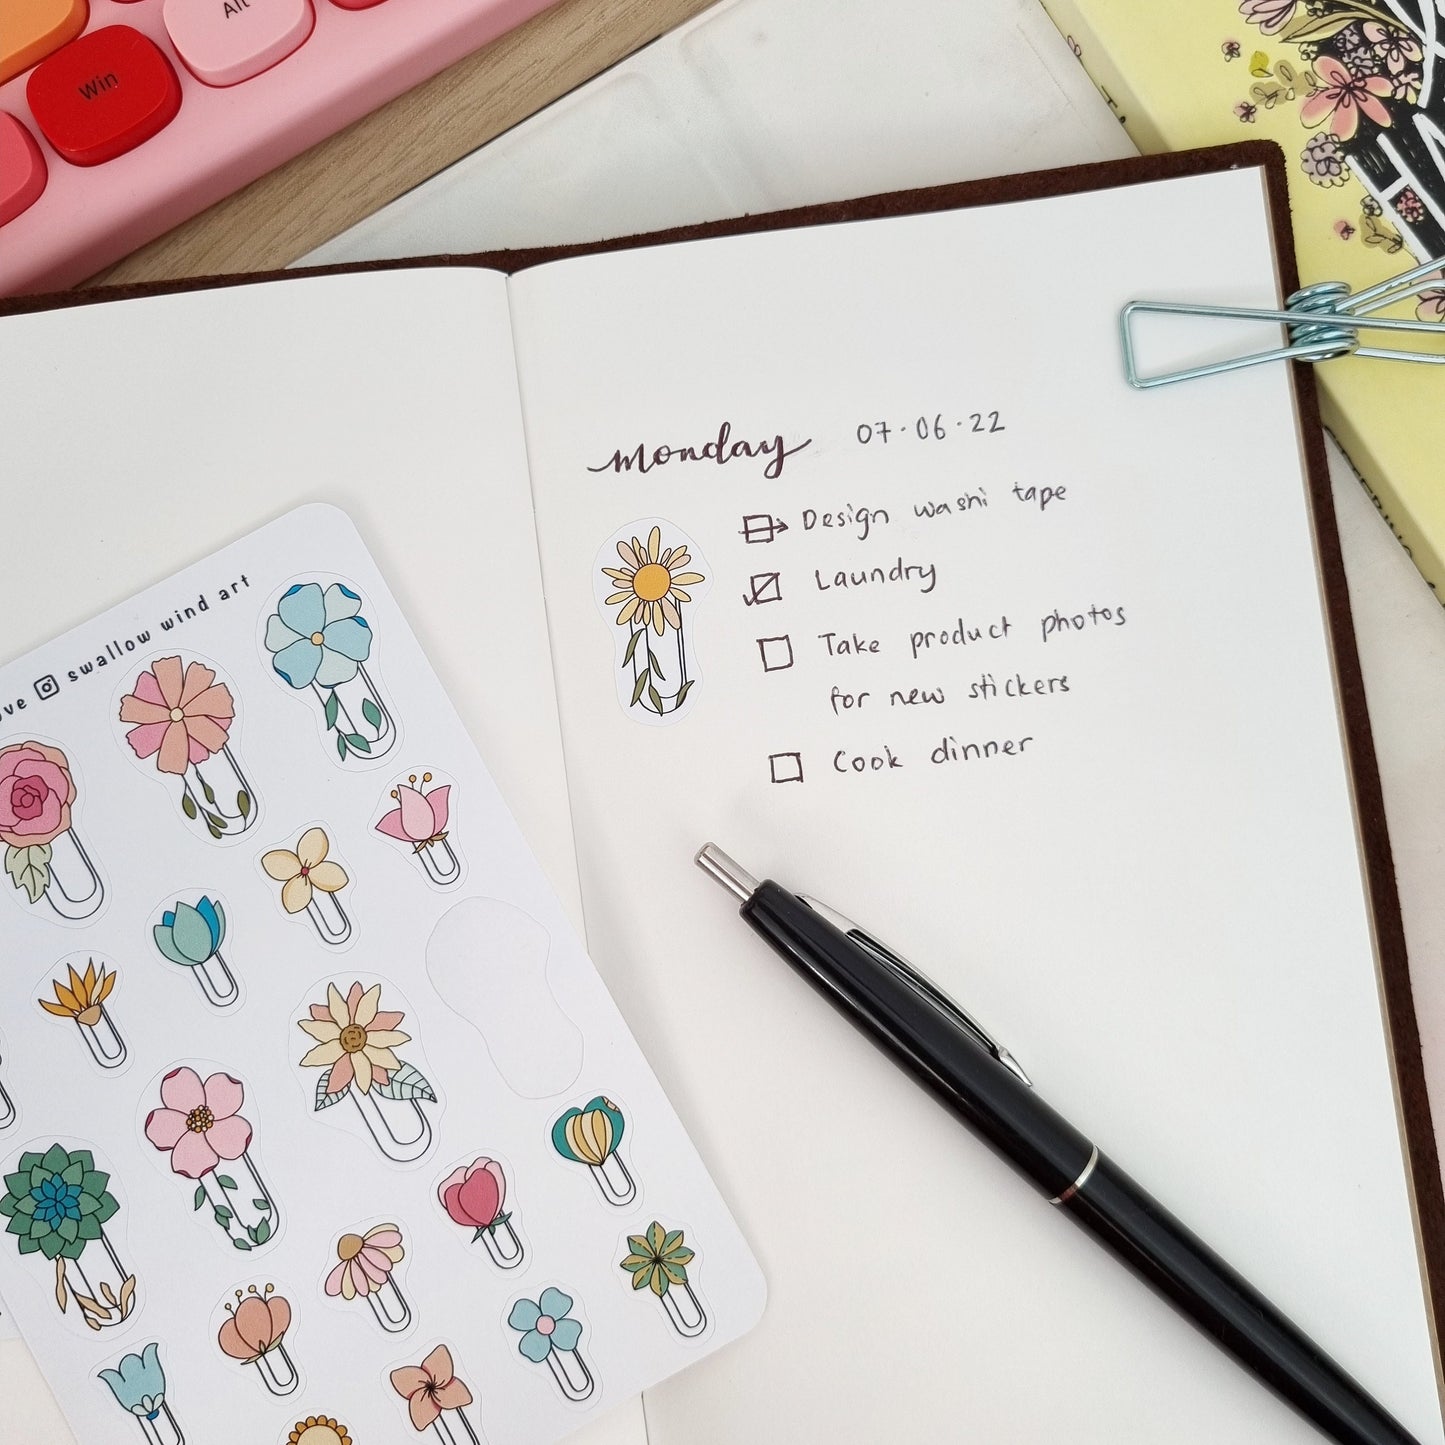 Alt
Win
Monday 07.06.22
Design washi tape
Laundry
Take product photos
for new stickers
Cook dinner
swallow wind art